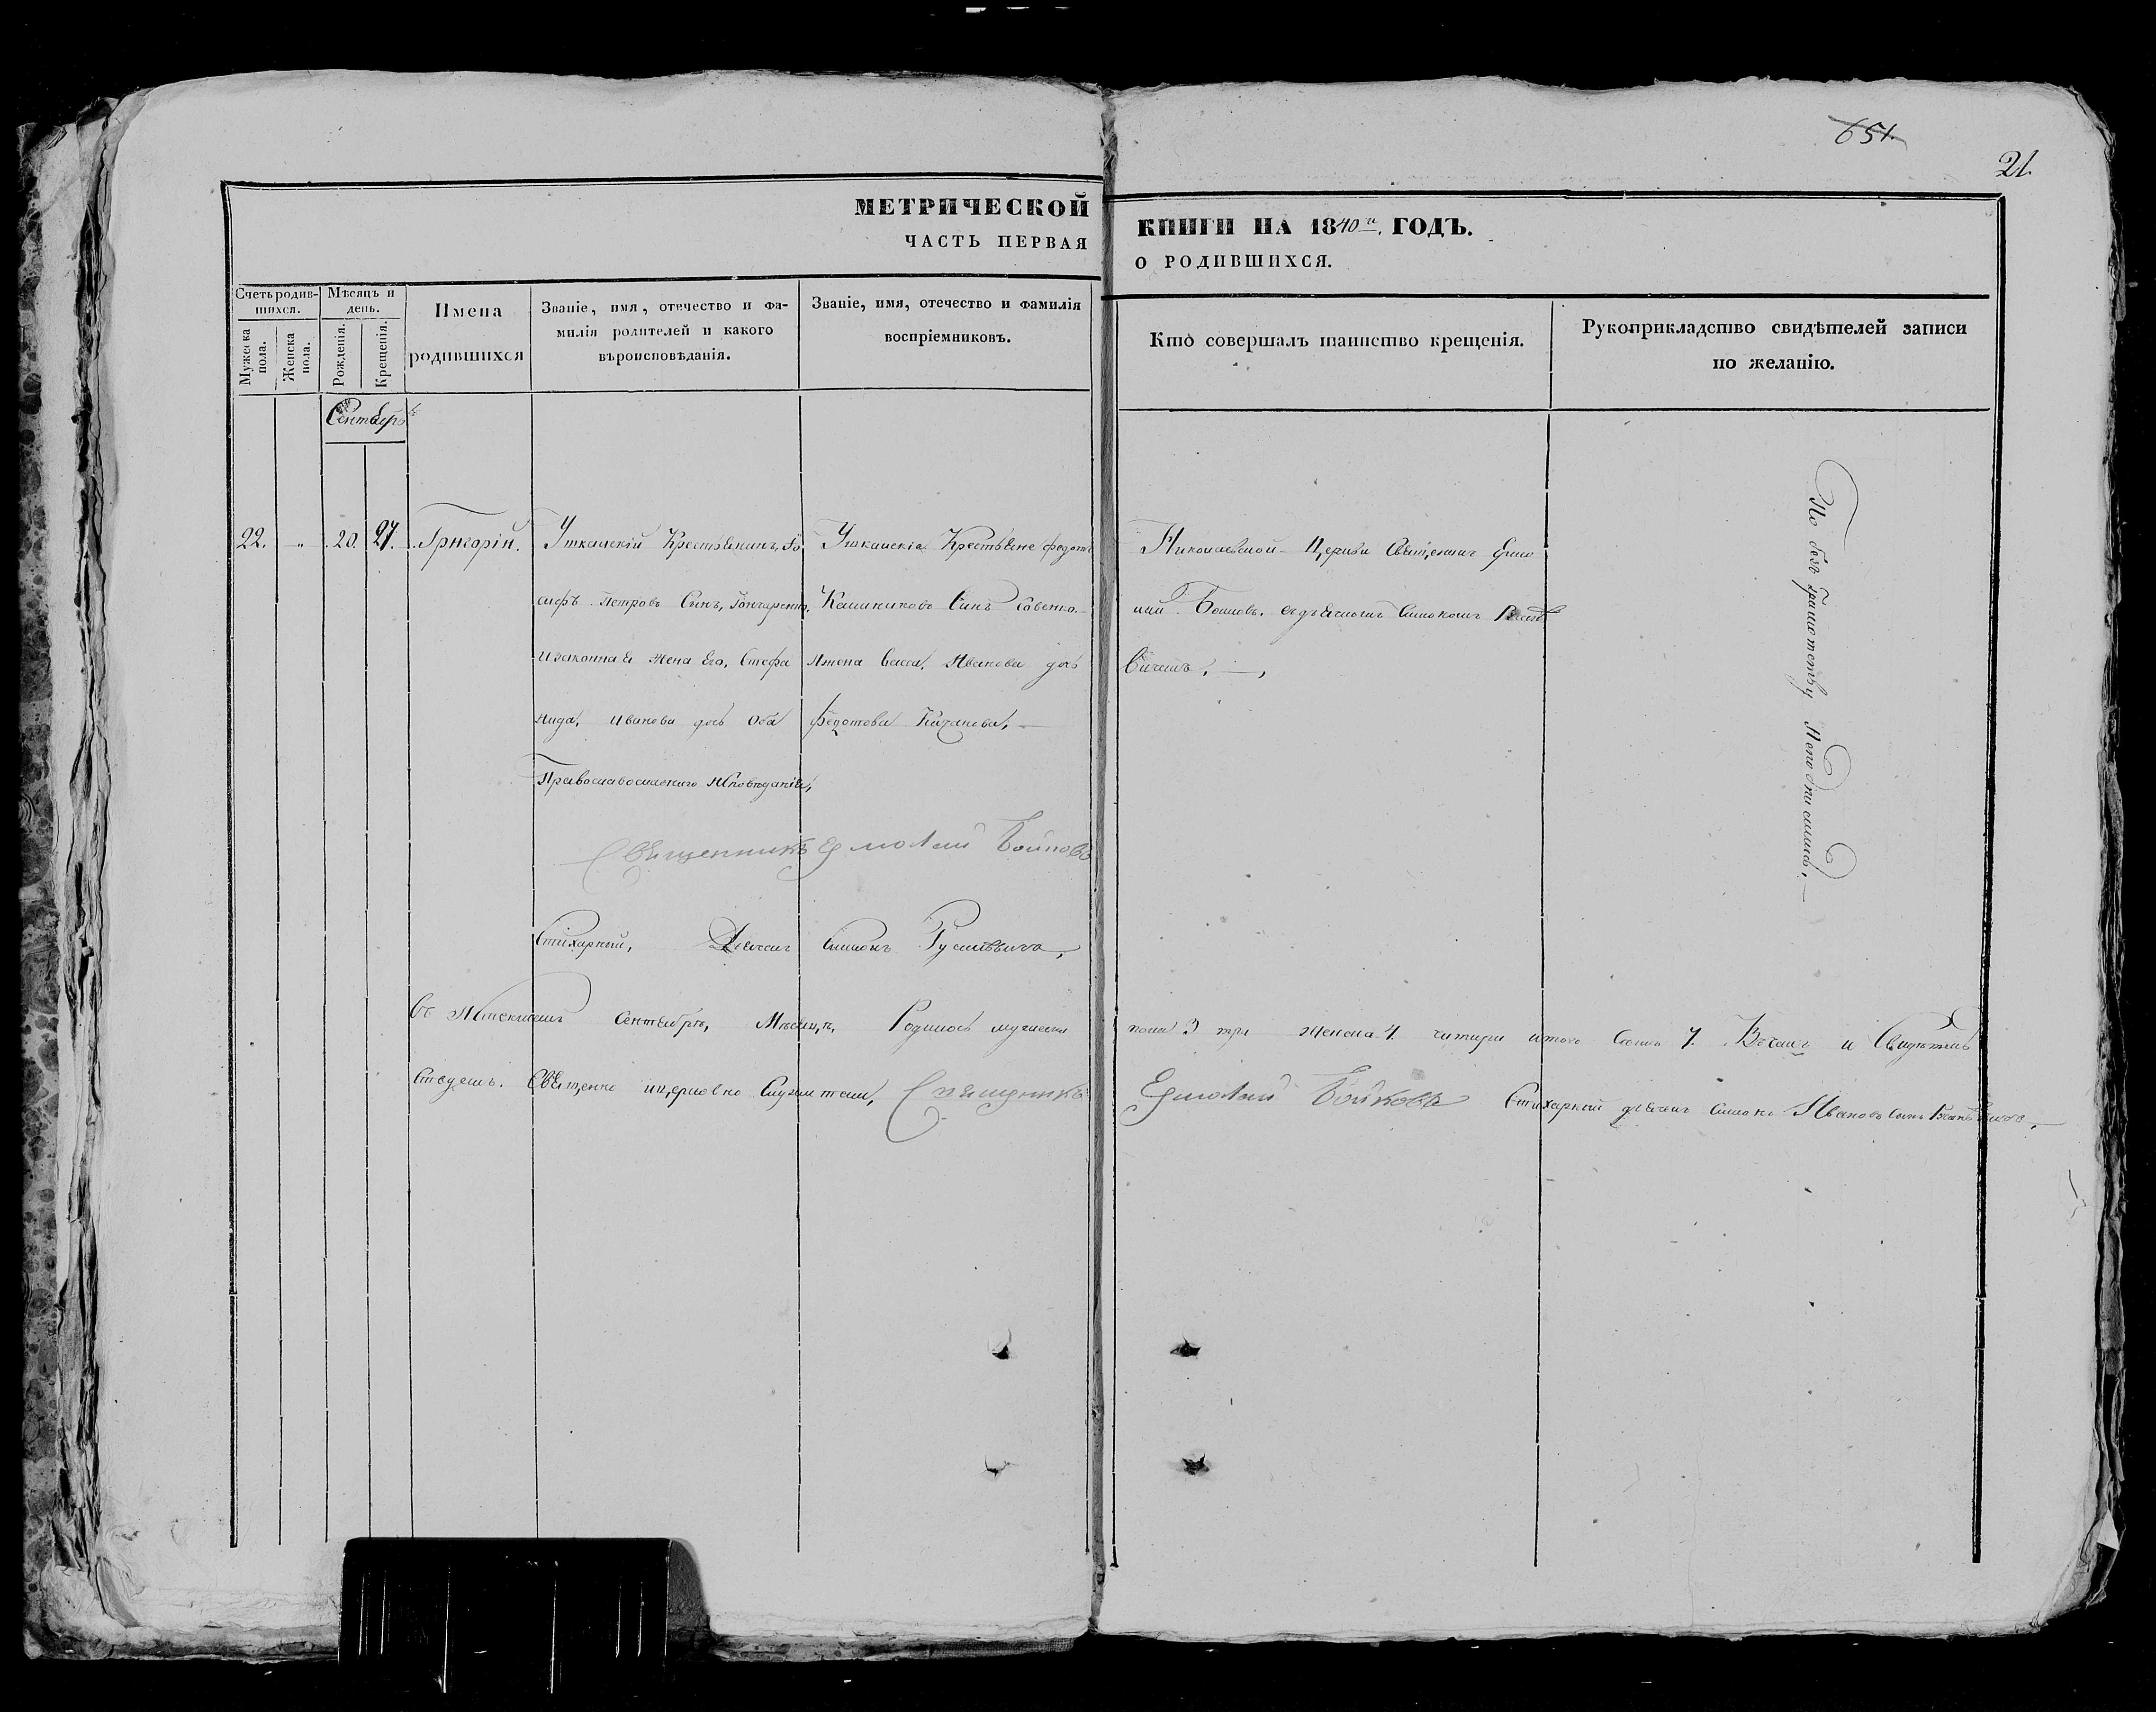 651.
21.
МЕТРИЧЕСКОЙ
КНИГИ НА 1840й. ГОДЪ.
ЧАСТЬ ПЕРВАЯ
О РОДИВШИХСЯ.
Счетъ родившихся.
Мужеска пола.
Женска пола.
Мѣсяцъ и день.
Рожденія.
Крещенія.
Имена родившихся
Званіе, имя, отечество и фа-
милія родителей и какого
вѣроисповѣданія.
Званіе, имя, отечество и фамилія
воспріемниковъ.
Кто совершалъ таинство крещенія.
Рукоприкладство свидѣтелей записи
по желанію.
Сентябрь
22. „ 20. 27. Григорій.
Крестьянинъ, Іо
сифъ Петровъ Сынъ, Гончаренко,
и законная жена Его, Стефа
нида, Иванова дочь Оба
Православнаго исповѣданія,
Крестьяне Федотъ
Сынъ
жена Васса, Иванова дочь
Федотова
Николаевской Церкви Священникъ Ермо
лай Бойковъ. съ дьячкомъ Симономъ
вичемъ, —,
По безграмотству Неподписались, —
Священникъ Ермолай Бойковъ
Стихарный, Дьячекъ Симонъ
Сентябрѣ, Мѣсяцѣ, Родилось мужеска
пола 3 три женска 4. читыри итого 7. и
Священно и церковно Служители, Священникъ
Ермолай Бойковъ Стихарный дьячекъ Симонъ Ивановъ Сынъ